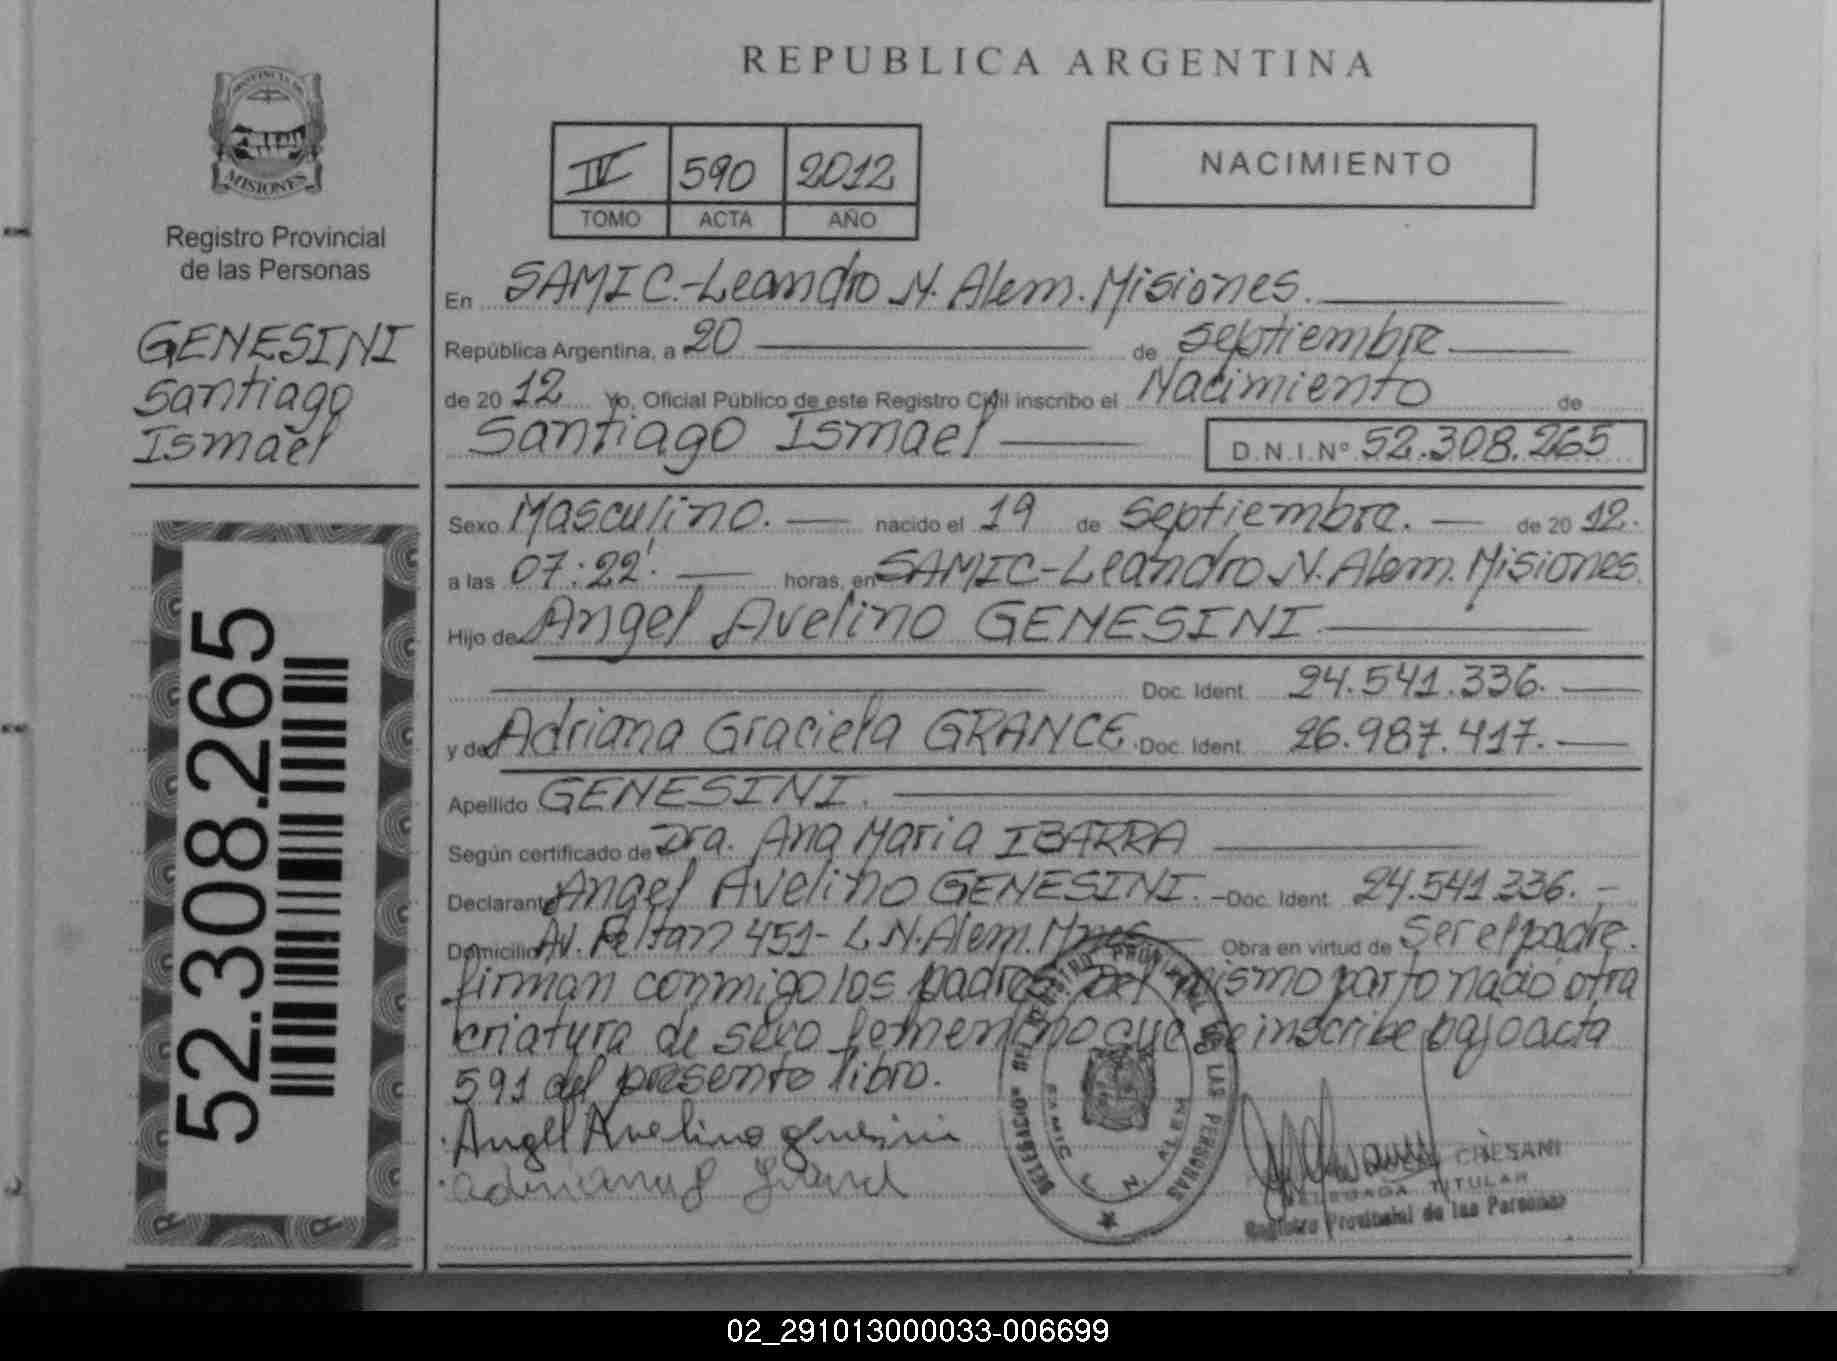 PROVINCIA DE
MISIONES
Registro Provincial
de las Personas
GENESINI
Santiago
Ismael
52.308.265
REPUBLICA ARGENTINA
IV 590 2012
TOMO ACTA AÑO
NACIMIENTO
En SAMIC.-Leandro N. Alem. Misiones.
República Argentina, a 20 de septiembre.
de 2012 Yo, Oficial Público de este Registro Civil inscribo el Nacimiento de
Santiago Ismael D.N.I.Nº 52.308.265
Sexo Masculino. nacido el 19 de septiembre. de 2012.
a las 07:22'. horas, en SAMIC-Leandro N. Alem. Misiones.
Hijo de Angel Avelino GENESINI.
Doc. Ident. 24.541.336.
y de Adriana Graciela GRANCE. Doc. Ident. 26.987.417.
Apellido GENESINI.
Según certificado de Dra. Ana Maria IBARRA
Declarante Angel Avelino GENESINI. - Doc. Ident. 24.541.336. -
Domicilio Av. 451- L.N. Alem. Mnes. Obra en virtud de ser el padre.
firman conmigo los padres. Del mismo parto nació otra
criatura de sexo femenino que se inscribe bajo acta
591 del presente libro.
Angel Avelino genesini
CRESANI
DELEGADA TITULAR
Registro Provincial de las Personas
REGISTRO PROVINCIAL DE LAS PERSONAS
SAMIC L. N. ALEM
02_291013000033-006699